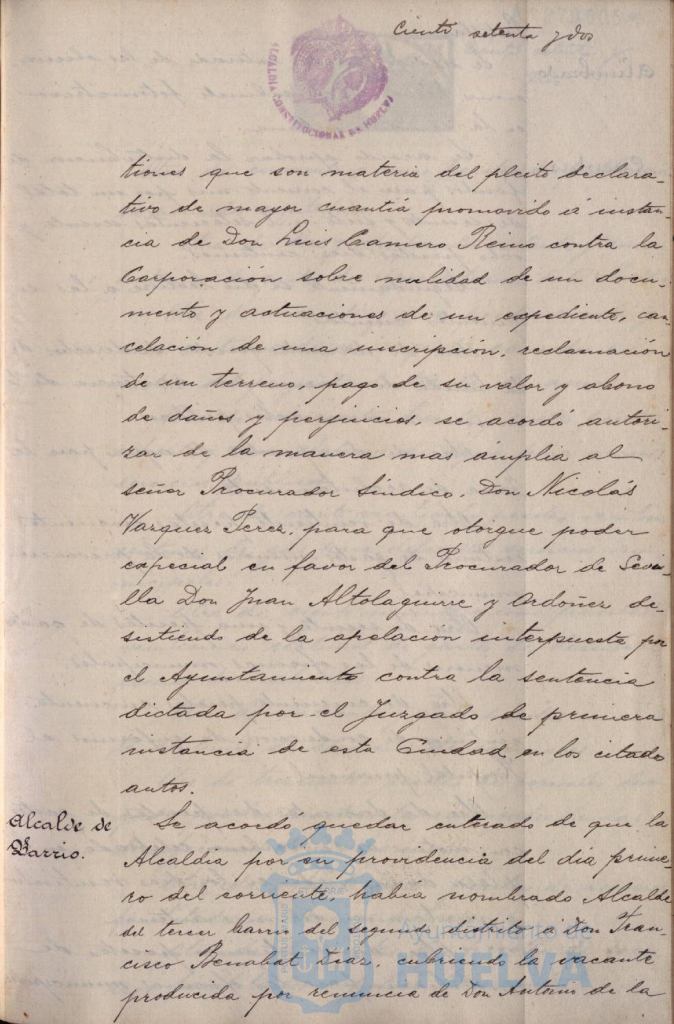 Ciento setenta y dos
ALCALDIA CONSTITUCIONAL DE HUELVA
tiones que son materia del pleito declara-
tivo de mayor cuantiá promovido á instan-
cia de Don Luis Camero Reino contra la
Corporación sobre nulidad de un docu-
mento y actuaciones de un expediente, can-
celación de una inscripción, reclamación
de un terreno, pago de su valor y abono
de daños y perjuicios, se acordó autori-
zar de la manera mas ámplia al
señor Procurador Síndico, Don Nicolás
Vazquez Perez, para que otorgue poder
especial en favor del Procurador de Sevi-
lla Don Juan Altolaguirre y Ordoñez de-
sistiendo de la apelación interpuesta por
el Ayuntamiento contra la sentencia
dictada por el Juzgado de primera
instancia de esta Ciudad en los citados
autos.
Alcalde de
Barrio.
Se acordó quedar enterado de que la
Alcaldia por su providencia del dia prime-
ro del corriente, había nombrado Alcalde
del tercer barrio del segundo distrito á Don Fran-
cisco Benabat Diaz, cubriendo la vacante
producida por renuncia de Don Antonio de la
Ayuntamiento de
HUELVA